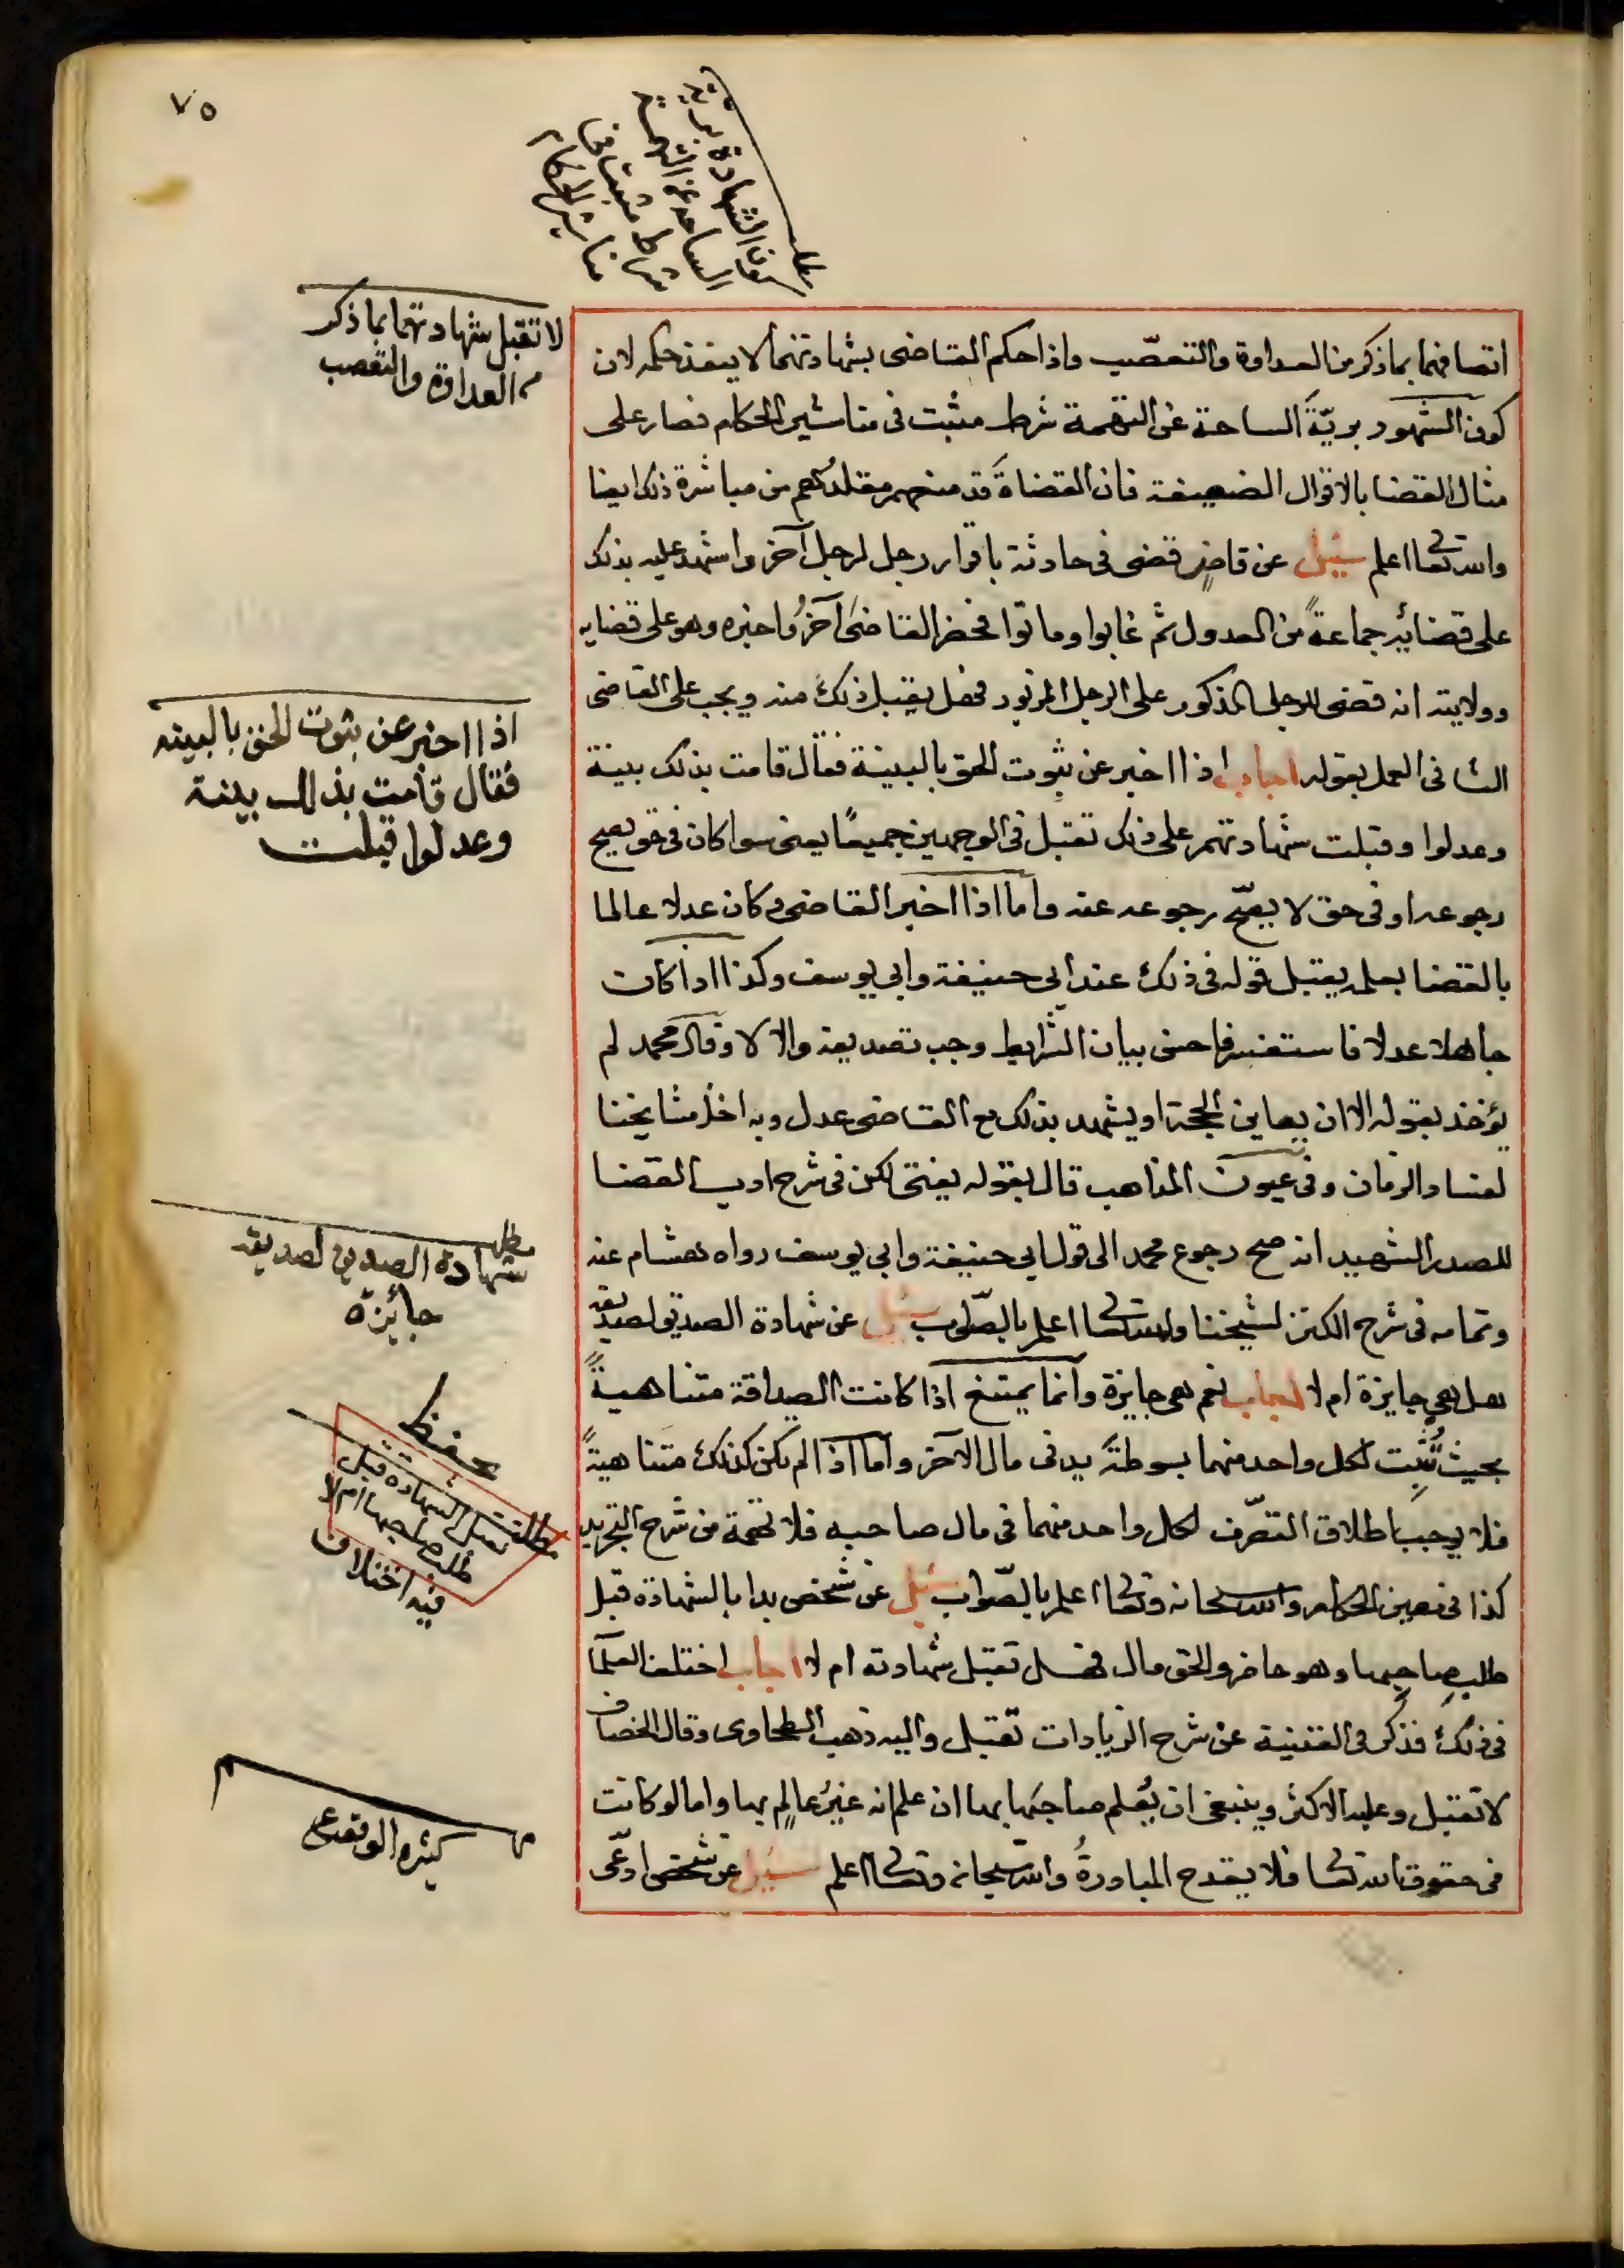 ٧٥
مطلب
كون الشهادة برية
الساحة عن التهمة
شرط مثبت في
مناشير الحكام
لا تقبل شهادتهما بما ذكر
من العداوة والتعصب
اتصافهما بما ذكر من العداوة والتعصّب واذا حكم القاضى بشهادتهما لا ينفذ حكمه لان
كون الشهود بريّةَ الساحة عن التهمة شرط مثبت فى مناشير الحكام فصار على
مثال القضا بالاقوال الضعيفة فان القضاةَ قد منعهم مقلدُهم من مباشرة ذلك ايضا
والله تعالى اعلم سئل عن قاضٍ قضى فى حادثة باقرار رجل لرجل آخر واشهد عليه بذلك
على قضائه جماعةً من العدول ثم غابوا وماتوا فحضر القاضى آخرُ واخبره وهو على قضايه
وولايته انه قضى للرجل المذكور على الرجل المزبور فهل يقبل ذلك منه ويجب على القاضى
الثانى العمل بقوله اجاب اذا اخبر عن ثبوت الحق بالبينة فقال قامت بذلك بينة
وعدلوا وقبلت شهادتهم على ذلك تقبل فى الوجهين جميعًا يعنى سوا كان فى حق يصح
رجوعه او فى حق لا يصحّ رجوعه عنه واما اذا اخبر القاضى وكان عدلا عالما
بالقضا بعلمه يقبل قوله فى ذلك عند ابى حنيفة وابي يوسف وكذا اذا كان
جاهلا عدلا فاستفسر فاحسن بيان الشرايط وجب تصديقه والا لا وقال محمد لم
يؤخذ بقوله الا ان يعاين الحجة او يشهد بذلك مع القاضى عدل وبه اخذ مشايخنا
لفساد الزمان وفى عيون المذاهب قال بقوله يفتى لكن فى شرح ادب القضا
للصدر الشهيد انه صح رجوع محمد الى قول ابي حنيفة وابي يوسف رواه هشام عنه
وتمامه فى شرح الكنز لشيخنا والله تعالى اعلم بالصّواب سئل عن شهادة الصديق لصديقه
هل هي جايزة ام لا اجاب نعم هى جايزة وانما يمتنع اذا كانت الصداقة متناهيةً
بحيث تُثبت لكل واحد منهما بسوطةَ يد فى مال الآخر واما اذا لم تكن كذلك متناهيةً
فلا يوجب اطلاق التصّرف لكل واحد منهما فى مال صاحبه فلا تهمة من شرح التجريد
كذا فى معين الحكام والله سبحانه وتعالى اعلم بالصّواب سئل عن شخص بدا بالشهادة قبل
طلب صاحبها وهو حاضر والحق مال فهل تقبل شهادته ام لا اجاب اختلف العلمآ
فى ذلك فذكر فى القنية عن شرح الزيادات تقبل واليه ذهب الطحاوى وقال الخصاف
لا تقبل وعليه الاكثر وينبغى ان يُعلم صاحبَها بها ان علم انه غيرُ عالِم بها واما لو كانت
فى حقوق الله تعالى فلا يقدح المبادرةُ والله سبحانه وتعالى اعلم سئل عن شخص ادّعى
اذا اخبر عن ثبوت الحق بالبينه
فقال قامت بذلك بينة
وعدلوا قبلت
مطلب
شهادة الصديق لصديقه
جائزة
يحفظ
مطلب تقبل الشهادة قبل
طلب صاحبها ام لا
فيه اختلاف
كثير الوقوع